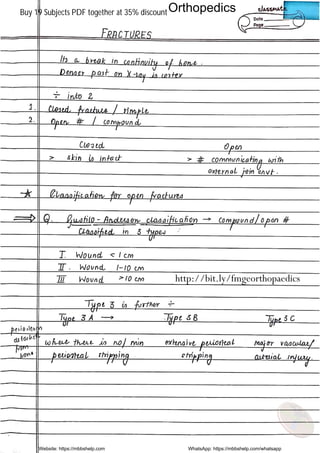 Buy 19 Subjects PDF together at 35% discount
Orthopedics
classmate
Date
Page
FRACTURES
Its a break in continuity of bone.
Denser part on X-ray is cortex
÷ into 2
1. Closed fracture / simple
2. Open # / compound
Closed Open
> skin is intact > # communicating with
external join envt.
* Classification for open fractures
⇒ Q. Gustilo - Anderson classification → Compound/open #
Classified in 3 types
I Wound < 1 cm
II. Wound 1-10 cm
III Wound >10 cm
http://bit.ly/fmgeorthopaedics
Type 3 is further ÷
Type 3A → Type 3B Type 3C
where there is no/min extensive periosteal major vascular/
periosteal stripping stripping arterial injury.
periosteum
detached
from
bone
Website: https://mbbshelp.com WhatsApp: https://mbbshelp.com/whatsapp